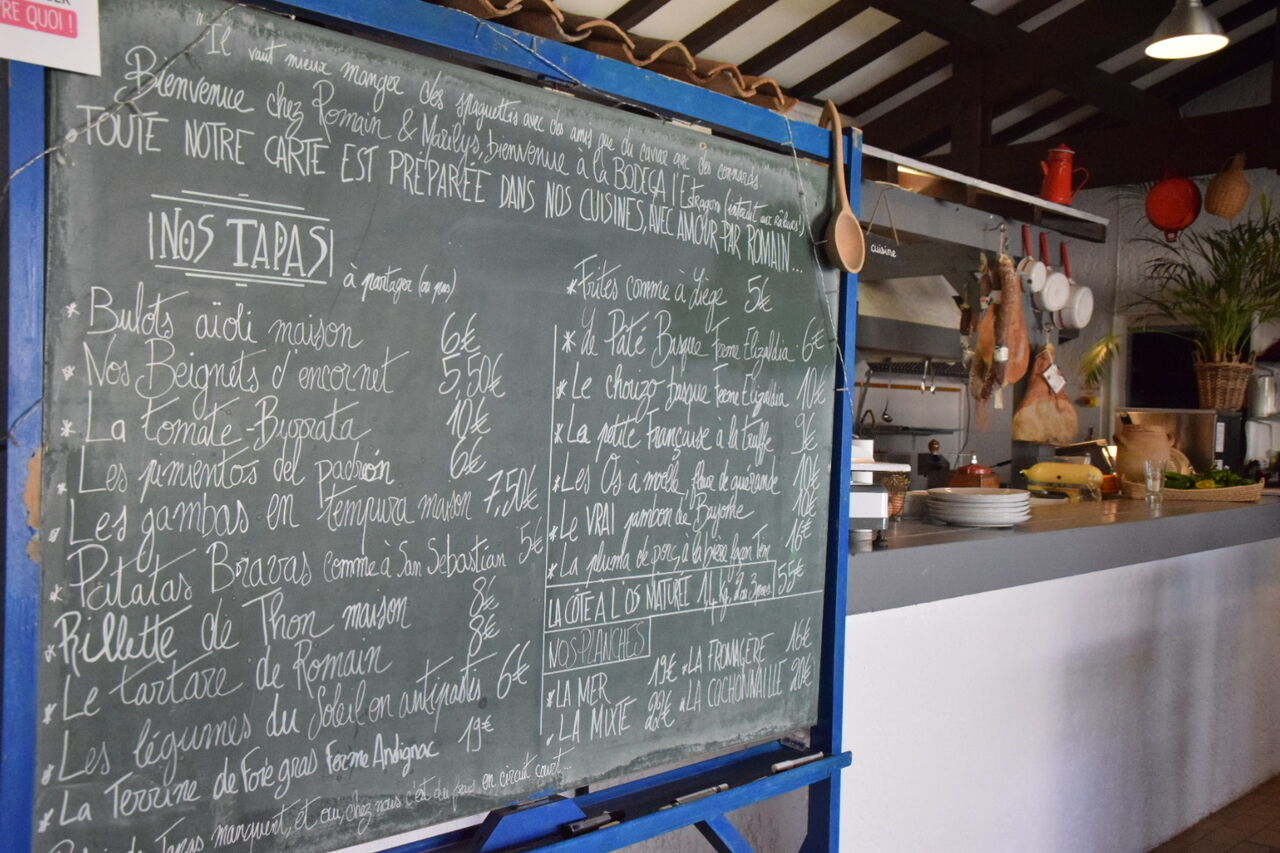 RE QUOI !
"Il vaut mieux manger des spaguettis avec des amis que du caviar avec des connards.
Bienvenue chez Romain & Marilys, bienvenue à la BODEGA l'Estragon (interdit aux râleurs!)
TOUTE NOTRE CARTE EST PRÉPARÉE DANS NOS CUISINES, AVEC AMOUR PAR ROMAIN...
NOS TAPAS
à partager (ou pas)
* Bulots aïoli maison 6€
* Nos Beignets d'encornet 5,50€
* La tomate-Burrata 10€
* Les pimientos del padrón 6€
* Les gambas en tempura maison 7,50€
* Patatas Bravas comme à San Sebastian 5€
* Rillette de Thon maison 8€
* Le tartare de Romain 8€
* Les légumes du Soleil en antipastis 6€
* La Terrine de Foie gras Ferme Andignac 19€
Tapas manquent, et oui, chez nous c'est du frais en circuit court...
* Frites comme à Liège 5€
* Le Pâté Basque Ferme Elizaldia 6€
* Le chorizo basque Ferme Elizaldia 10€
* La petite Française à la truffe 9€
* Les Os à moelle, fleur de guérande 10€
* Le VRAI jambon de Bayonne 10€
* La pluma de porc, à la bière façon Tom 16€
LA CÔTE A L'OS MATURÉE 1,4 kg, 2 ou 3 pers 55€
NOS PLANCHES
* LA MER 19€ * LA FROMAGÈRE 16€
* LA MIXTE 22€ * LA COCHONNAILLE 20€
cuisine